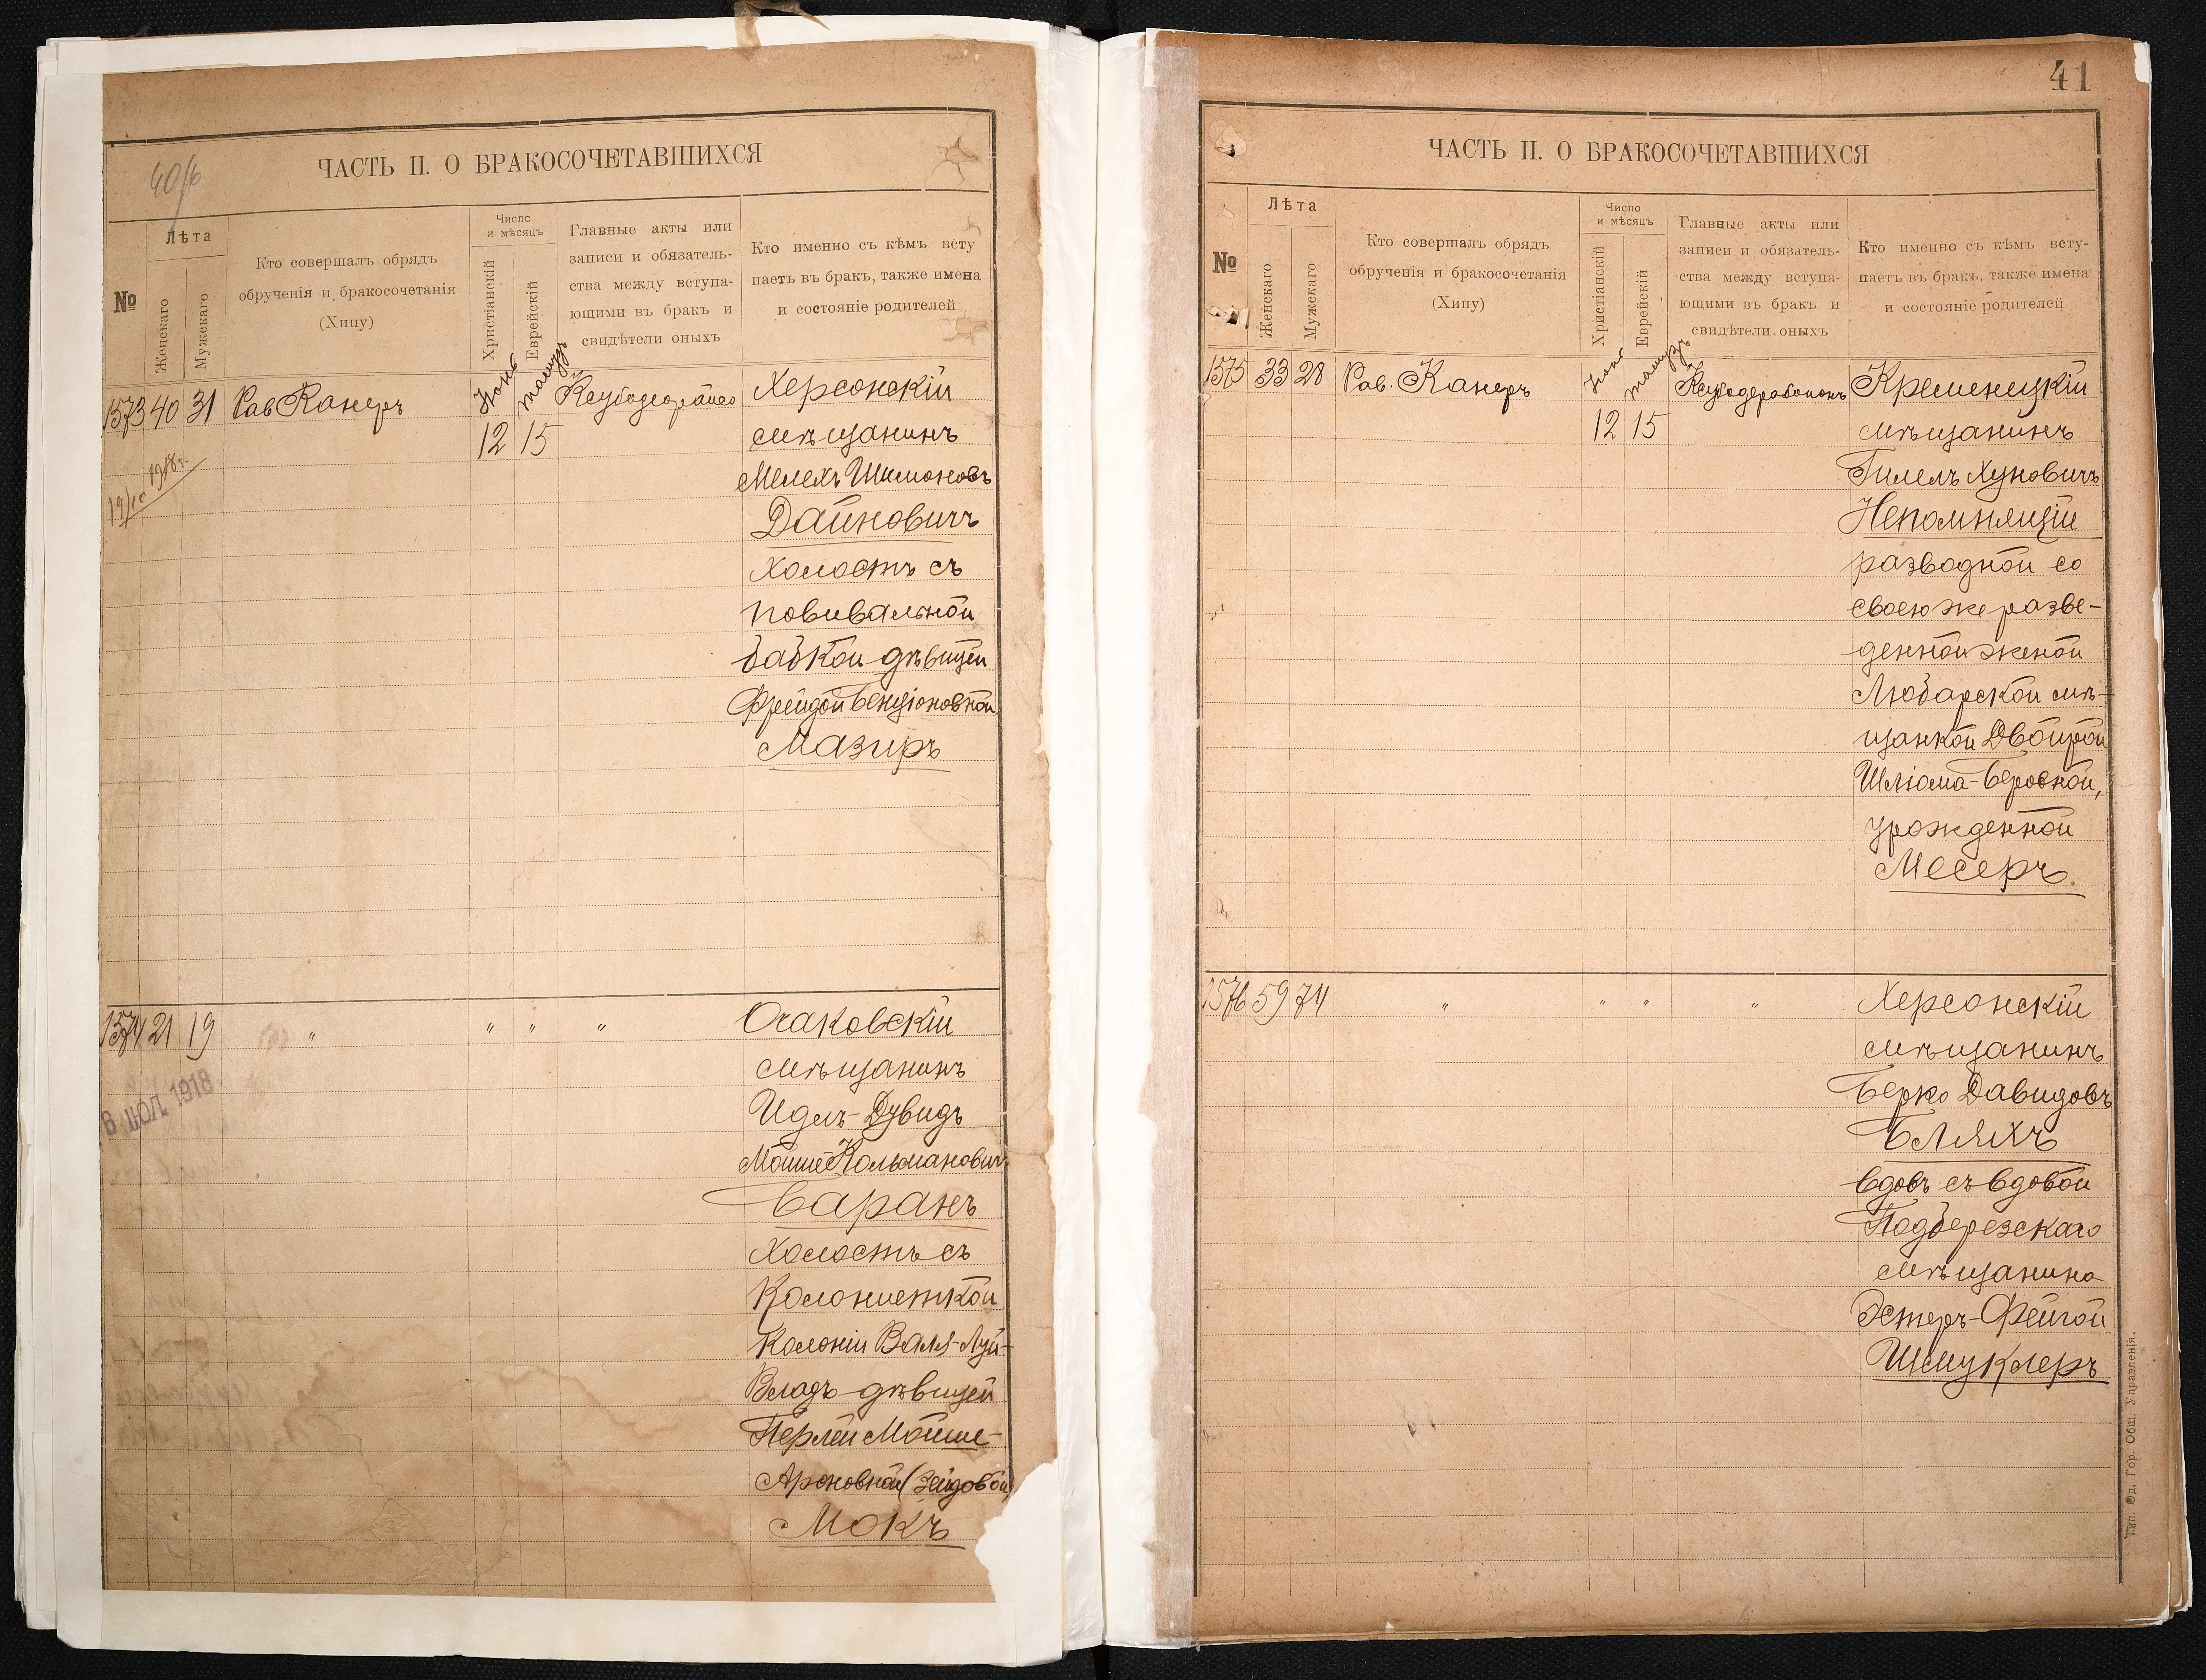 ЧАСТЬ II. О БРАКОСОЧЕТАВШИХСЯ
№
Лѣта
Женскаго
Мужскаго
Кто совершалъ обрядъ
обрученія и бракосочетанія
(Хипу)
Число
и мѣсяцъ
Христіанскій
Еврейскій
Главные акты или
записи и обязатель-
ства между вступа-
ющими въ бракъ и
свидѣтели оныхъ
Кто именно съ кѣмъ всту
паетъ въ бракъ, также имена
и состояніе родителей
1573 40 31 Рав Канеръ
Іюнь Тамузъ
12 15
Херсонскій
мѣщанинъ
Мелехъ Шимоновъ
Дайновичъ
холостъ съ
повивальной
бабкой дѣвицей
Фрейдой Бенціоновной
Мазиръ
1574 21 19 " " " "
Очаковскій
мѣщанинъ
Идель-Дувидъ
Мойше Кольманович
Баранъ
холостъ съ
Колонисткой
Колоніи Валя-Луй-
Владъ дѣвицей
Перлей Мойше-
Ароновной (Зейдовой)
Мокъ
6 ІЮЛ 1918
41
ЧАСТЬ II. О БРАКОСОЧЕТАВШИХСЯ
№
Лѣта
Женскаго
Мужскаго
Кто совершалъ обрядъ
обрученія и бракосочетанія
(Хипу)
Число
и мѣсяцъ
Христіанскій
Еврейскій
Главные акты или
записи и обязатель-
ства между вступа-
ющими въ бракъ и
свидѣтели оныхъ
Кто именно съ кѣмъ всту-
паетъ въ бракъ, также имена
и состояніе родителей
1575 33 28 Рав. Канеръ
Іюнь Тамузъ
12 15
Кременецкій
мѣщанинъ
Гилель Хуновичъ
Непомнящій
разводной со
своею же разве-
денной женой
Любарской мѣ-
щанкой Двойрой
Шліома-Беровной,
урожденной
Месеръ.
1576 59 74 " " " "
Херсонскій
мѣщанинъ
Берко Давидовъ
Бляхъ
вдовъ съ вдовой
Подберезскаго
мѣщанина
Эстеръ-Фейгой
Шмуклеръ
Тип. Од. Гор. Общ. Управленія.